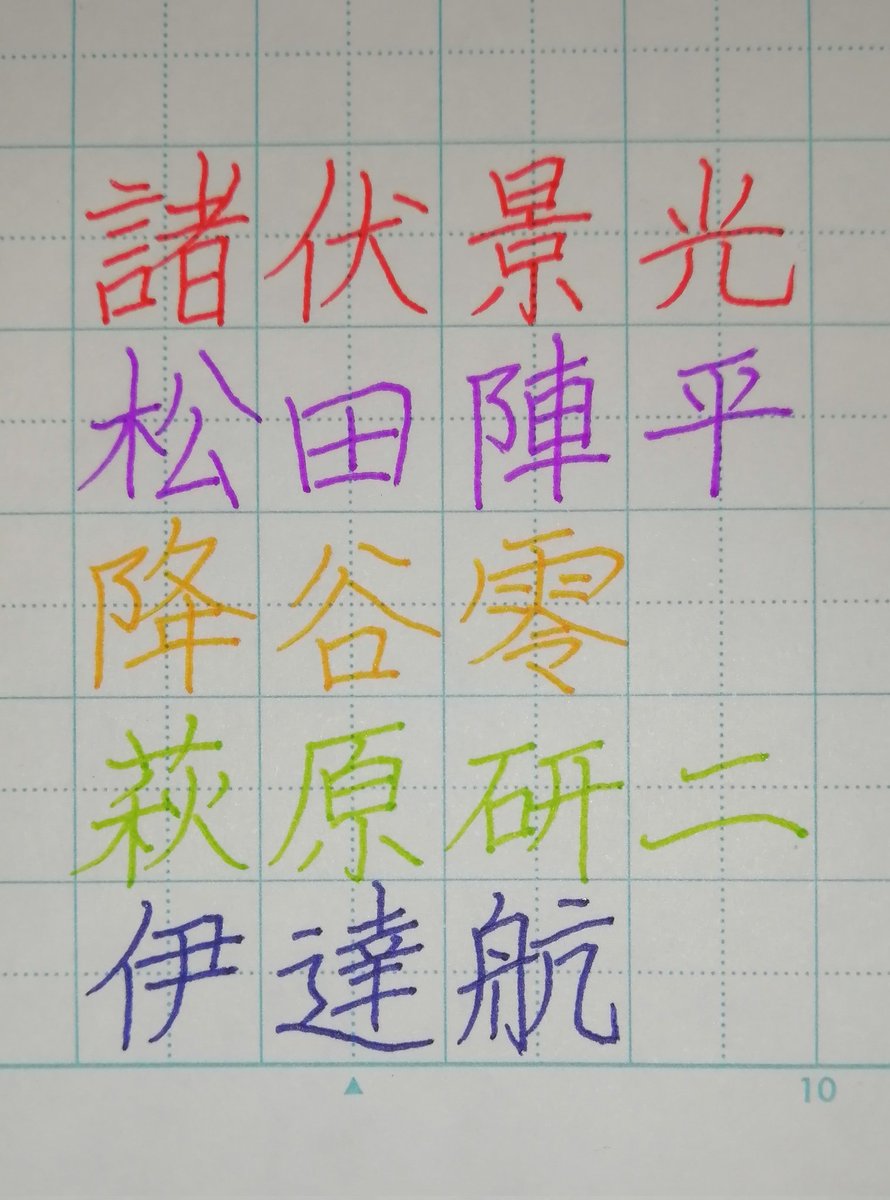 諸伏景光
松田陣平
降谷零
萩原研二
伊達航
10